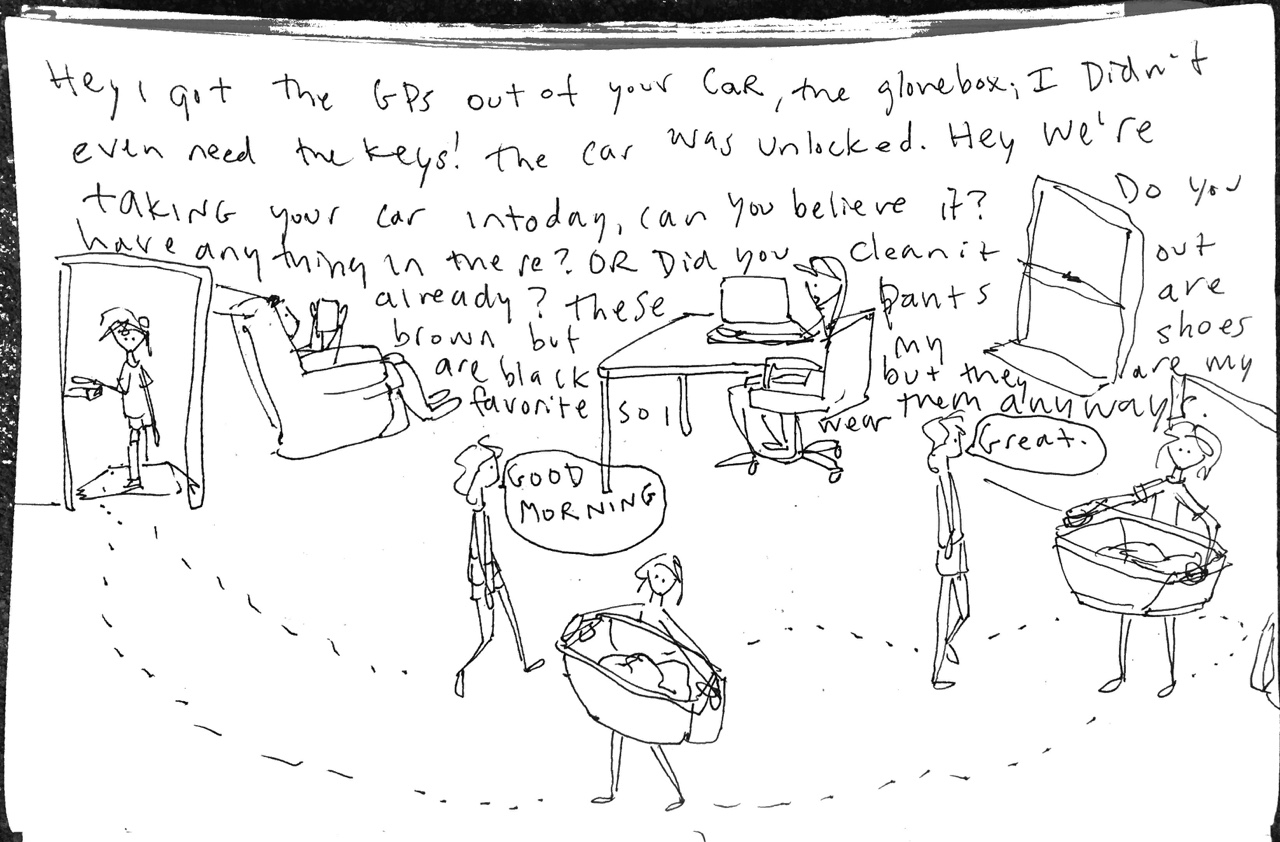 Hey I got the GPS out of your CAR, the glovebox; I Didn't
even need the keys! the car was unlocked. Hey we're
taKING your car intoday, can you believe it? Do you
have anything in there? OR Did you clean it out
already? these pants are
brown but my shoes
are black but they are my
favorite so I wear them anyways.
GOOD
MORNING
Great.